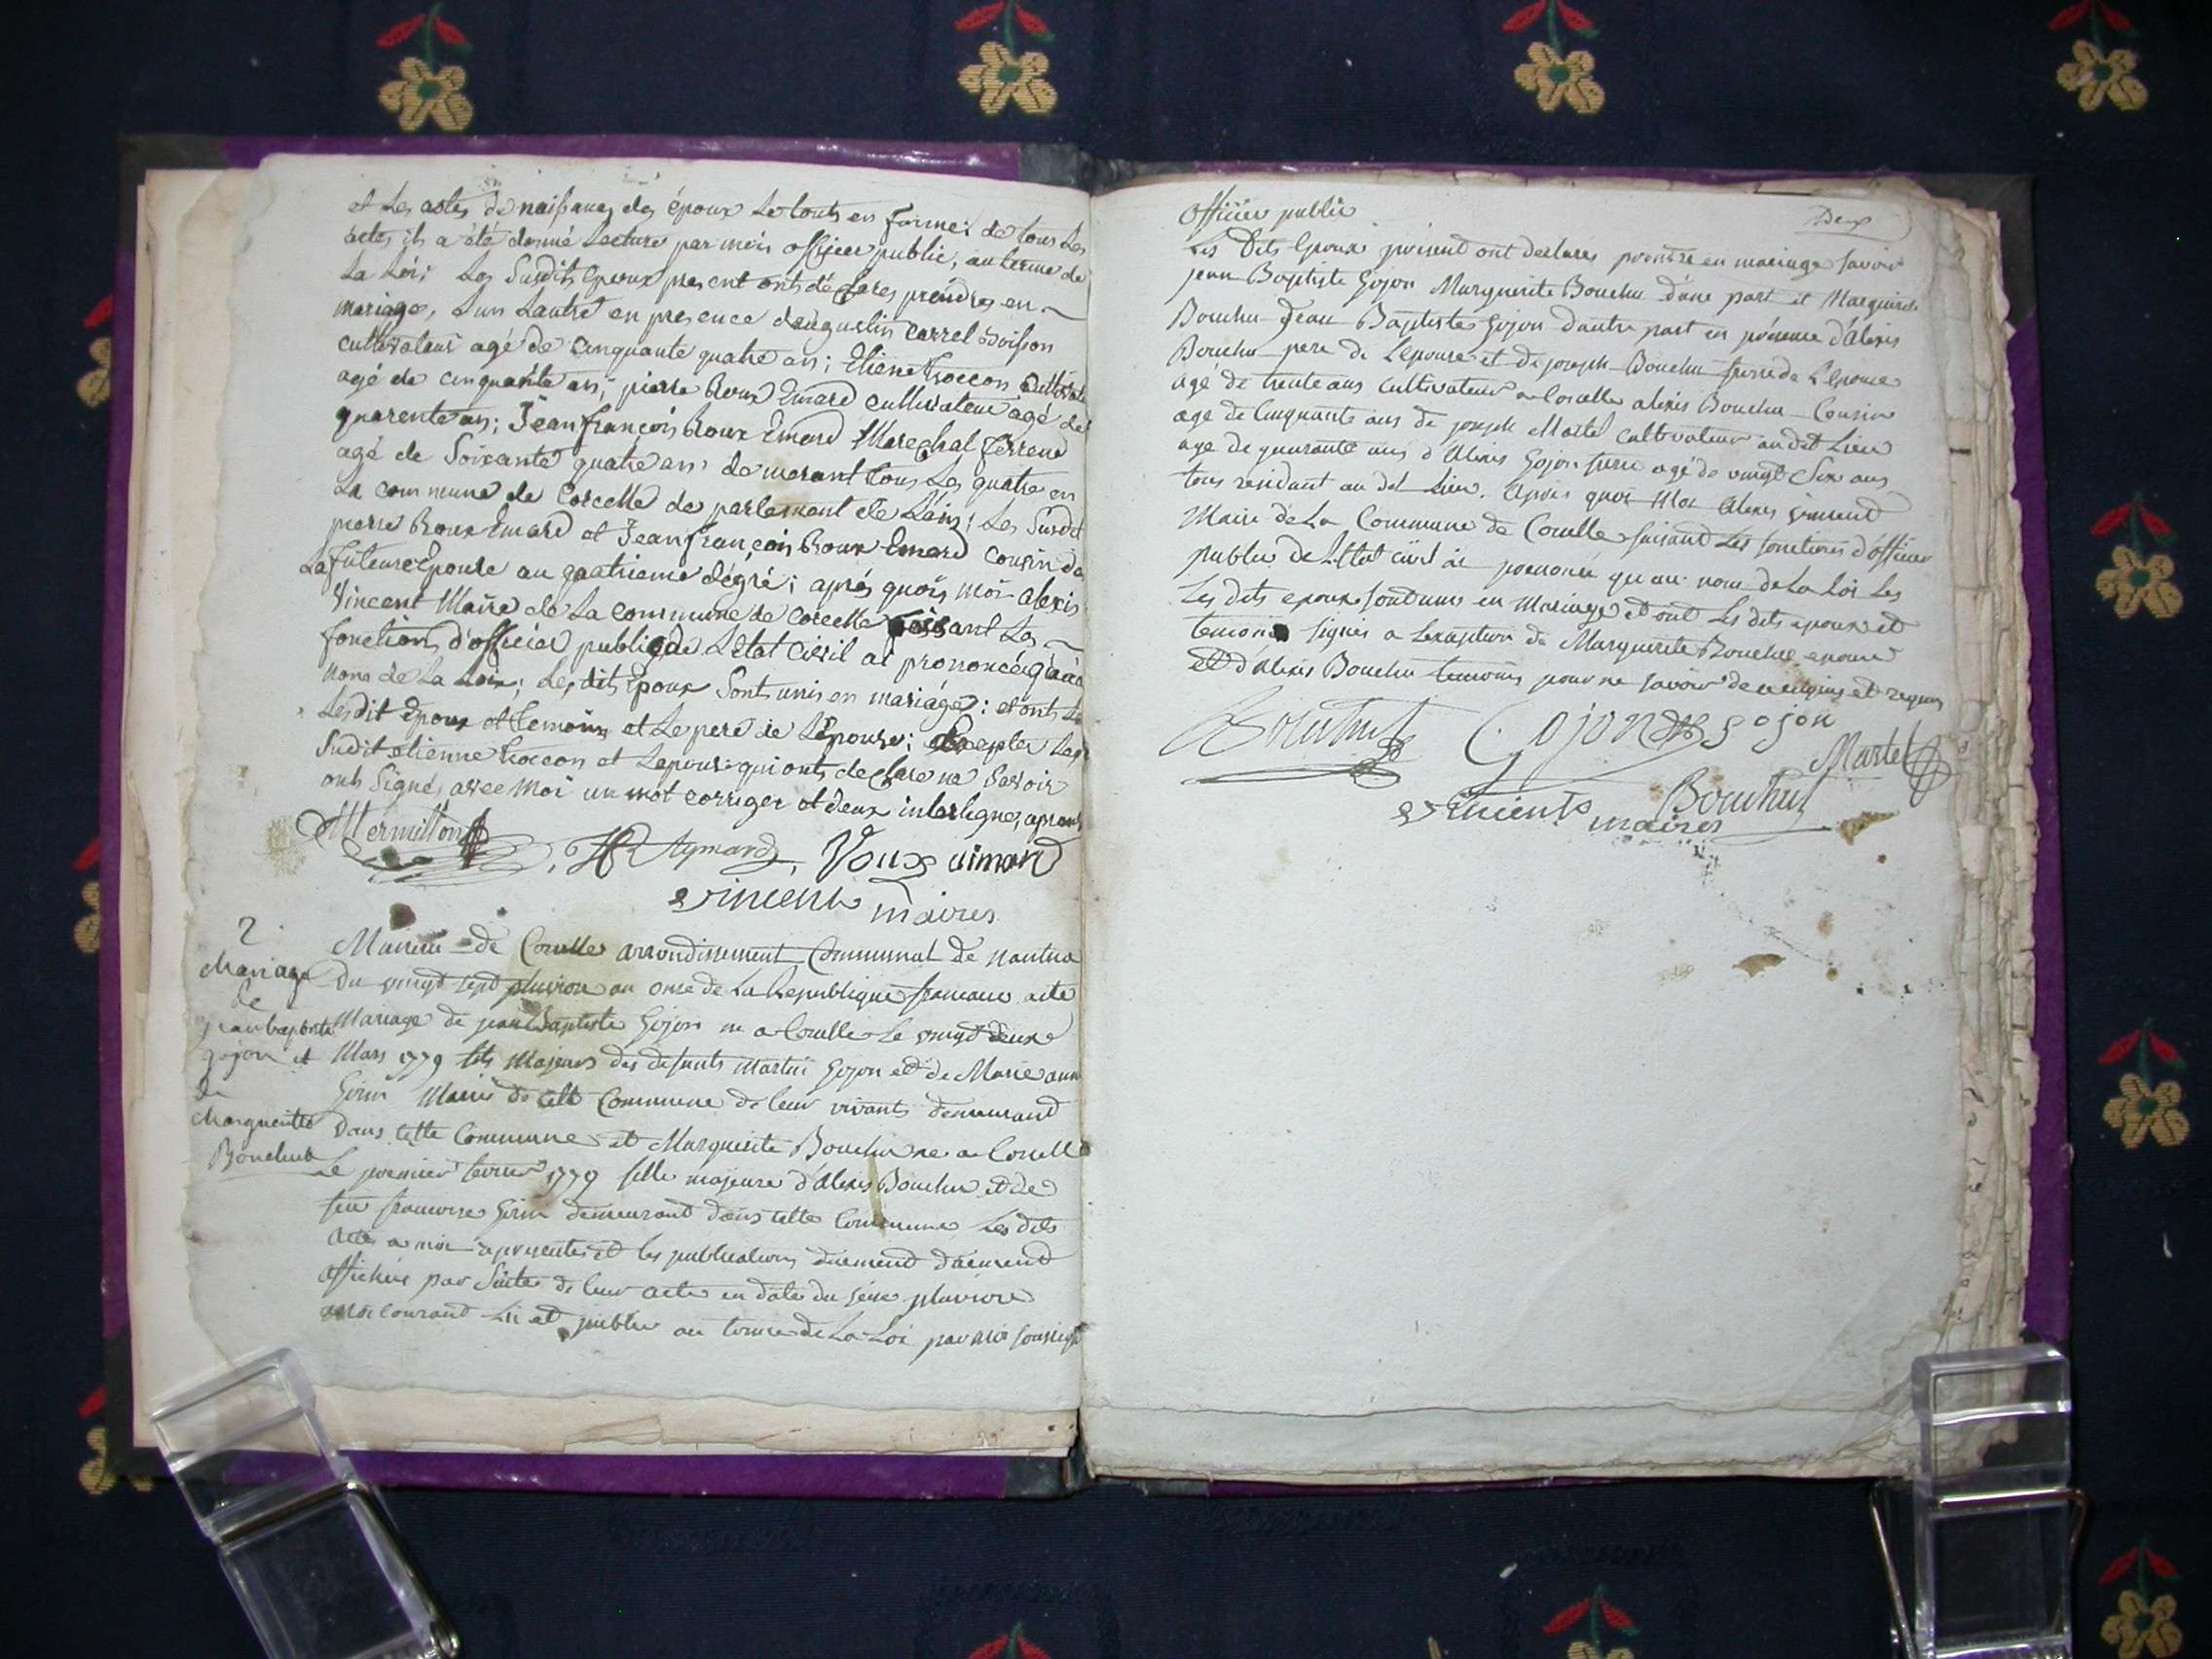 et Les actes de naissances des époux Le touts en forme; de tous Les
actes il a été donné Lecture par mois officier public, au terme de
La Loi; Les Susdits Epoux present onts déclares prendres en
mariage, L'un Lautre en presence
cultivateur agé de cinquante quatre ans; Etiene Troccon Cultivate
agé de cinquante ans; pierre Roux Emard cultivateur agé de
quarente ans; Jean françois Roux Emard Marechal ferrend
agé de Soixante quatre ans demerant tous Les quatre en
La commune de Corcelle de partement de L'ain; Les Susdit
pierre Roux Emard et Jean françois Roux Emard cousin de
La future Epouse au quatrieme dégré; aprés quois moi alexis
Vincent Maire de La commune de Corcelle faissant Les
fonctions d'officier public de L'état Civil ai prononcé qu'au
nom de La Loix; Les dits Epoux Sonts unis en mariage: et onts Le
Lesdit Epoux et temoins et Le pere de L'épouse; Excepter Les
Sudit etienne Troccon et Lepouse qui onts declare ne Savoir
onts Signé, avec moi un mot corriger et deux interligne, aprouv
Mermillon
Aymard, Roux aimard
Vincent maires
2.
Mairie de Corcelle arrondissement Communal de nantua
Mariage
de
jean baptiste
gojon et
de
Margueritte
Bouchut
Du vingt sept pluviose an onze de La Republique francaise acte
Mariage de jean Baptiste Gojon ne a Corcelle Le vingt deux
Mars 1779 fils Majeurs des defunts Martin Gojon et de Marie anne
Girin Mariés de cette Commune de leur vivants demeurand
Dans cette Commune et Marguerite Bouchu ne a Corcelle
Le premier fevrier 1779 fille majeure d'alexis Bouchu et de
feu francoise Girin demeurant dans cette Commune Les dits
actes a moi aprésentés et les publications duement
affichées par Suite de leur acte en date du seize pluviose
mois courand Lu et publié au terme de La Loi par moi soussigné
Deux
officier public
Les Dits Epoux présent ont declares prendre en mariage savoir
jean Baptiste Gojon Marguerite Bouchu d'une part et Marguerite
Bouchu Jean Baptiste Gojon d'autre part en présence d'alexis
Bouchu pere de L'epouse et de joseph Bouchu frere de L'epouse
agé de trente ans cultivateur a Corcelle alexis Bouchu Cousin
age de Cinquante ans de joseph Martel cultivateur au dit Lieu
age de quarante ans d'Alexis Gojon frere agé de vingt Six ans
tous residant au dit Lieu. Apres quoi Moi Alexis vincend
Maire de La Commune de Corcelle faisand Les fonctions d'officier
public de L'Etat civil ai prononcé qu'au nom de La Loi Les
Les dits epoux sont unis en Mariage et ont Les dits epoux et
temoins signés a Lexception de Marguerite Bouchu epouse
et d'alexis Bouchu temoins pour ne savoir de ce enquis et requis
Bouchut Gojon gojon
Martel
Vincent maires Bouchut